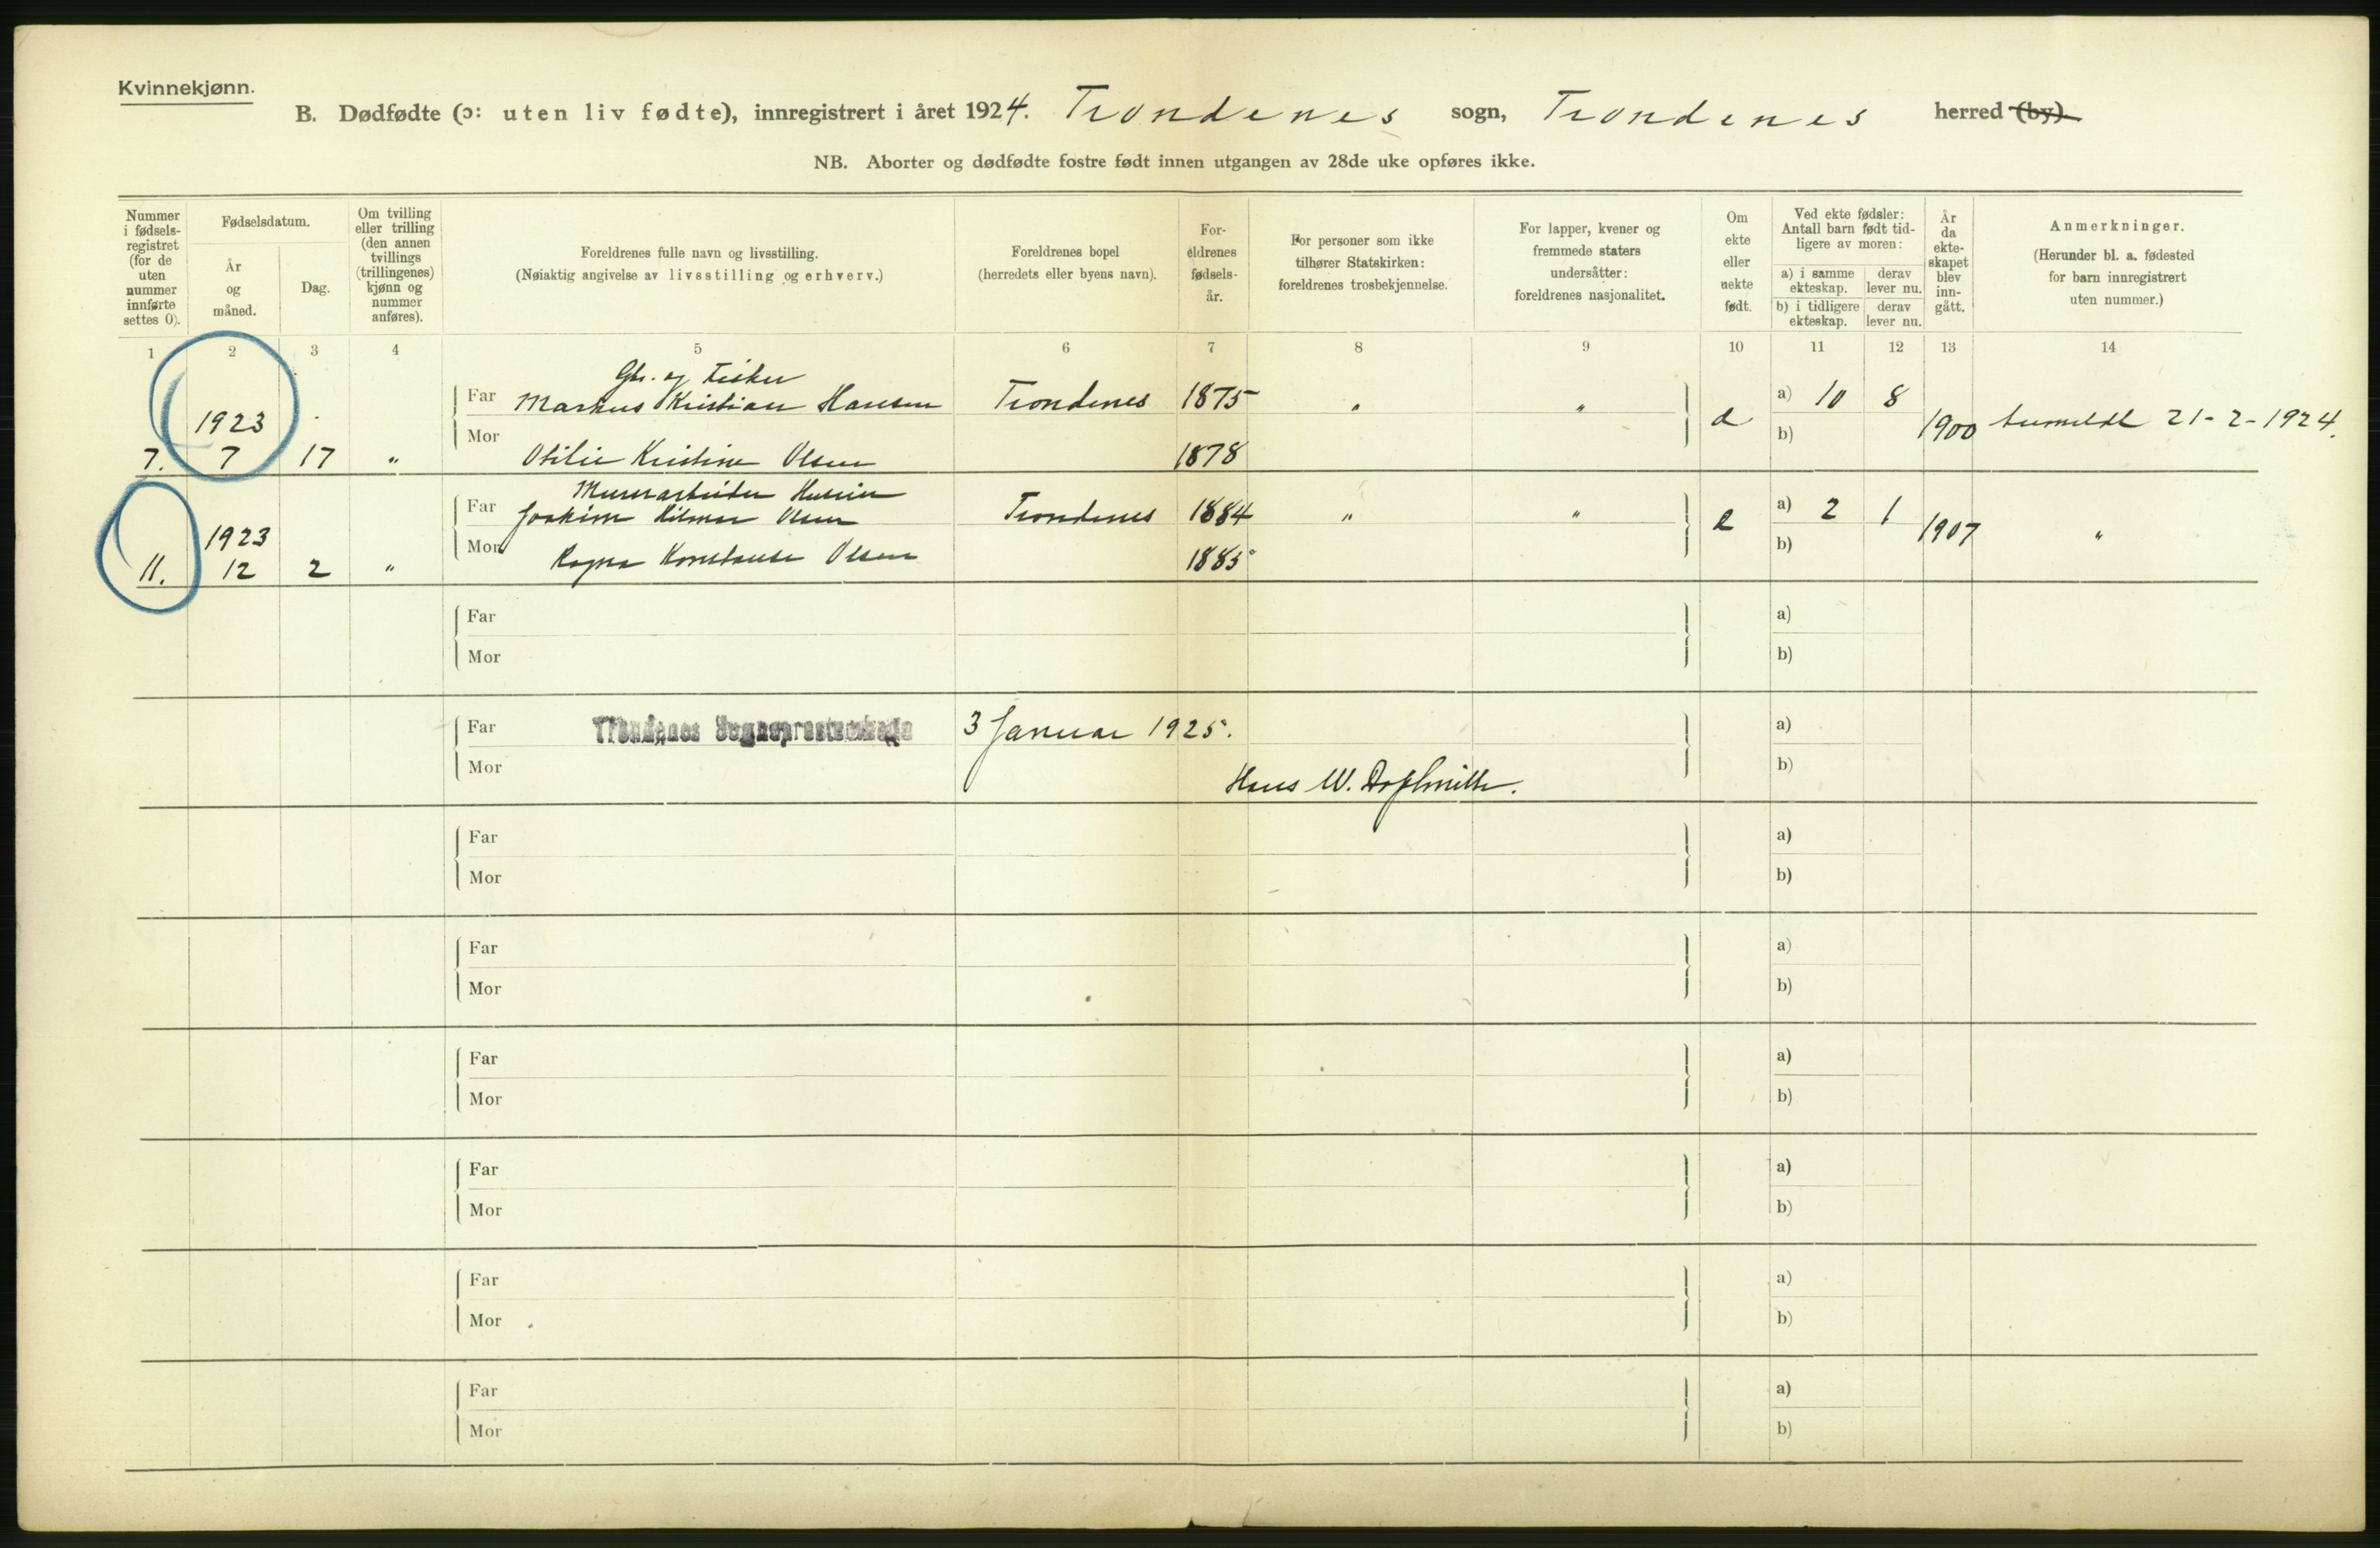 Kvinnekjønn.
B. Dødfødte (ɔ: uten liv fødte), innregistrert i året 1924. Trondenes sogn, Trondenes herred (by).
NB. Aborter og dødfødte fostre født innen utgangen av 28de uke opføres ikke.
Nummer i fødsels-registret (for de uten nummer innførte settes 0).
Fødselsdatum.
År og måned.
Dag.
Om tvilling eller trilling (den annen tvillings (trillingenes) kjønn og nummer anføres).
Foreldrenes fulle navn og livsstilling.
(Nøiaktig angivelse av livsstilling og erhverv.)
Foreldrenes bopel
(herredets eller byens navn).
For-eldrenes fødsels-år.
For personer som ikke tilhører Statskirken: foreldrenes trosbekjennelse.
For lapper, kvener og fremmede staters undersåtter: foreldrenes nasjonalitet.
Om ekte eller uekte født.
Ved ekte fødsler: Antall barn født tid-ligere av moren:
a) i samme ekteskap.
derav lever nu.
b) i tidligere ekteskap.
derav lever nu.
År da ekte-skapet blev inn-gått.
Anmerkninger.
(Herunder bl. a. fødested for barn innregistrert uten nummer.)
1 2 3 4 5 6 7 8 9 10 11 12 13 14
Gbr. og Fisker
Far Markus Kristian Hansen Trondenes 1875 " " a) 10 8
1923 e 1900 21-2-1924.
Mor b)
7. 7 17 " Otilie Kristine Olsen 1878
Murerarbeider
Far Joakim Hilmar Olsen Trondenes 1884 " " e a) 2 1
1923 1907 "
Mor b)
11. 12 2 " Ragna Konstanse Olsen 1885
Far a)
Mor b)
Far Trondenes Sogneprestembede 3 Januar 1925. a)
Mor b)
Hans W.
Far a)
Mor b)
Far a)
Mor b)
Far a)
Mor b)
Far a)
Mor b)
Far a)
Mor b)
Far a)
Mor b)